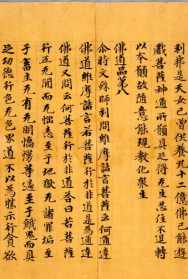 利弗是天女已曾供養九十二億佛已能遊
戲菩薩神通所願具足得无生忍住不退轉
以本願故隨意能現教化衆生
佛道品第八
尒時文殊師利問維摩詰言菩薩云何通達
佛道維摩詰言若菩薩行於非道是為通達
佛道又問云何菩薩行於非道荅曰若菩薩
行五无間而无惱恚至于地獄无諸罪垢至
于畜生无有无明憍慢等過至于餓鬼而具
足功德行色无色界道不以為勝示行貪欲